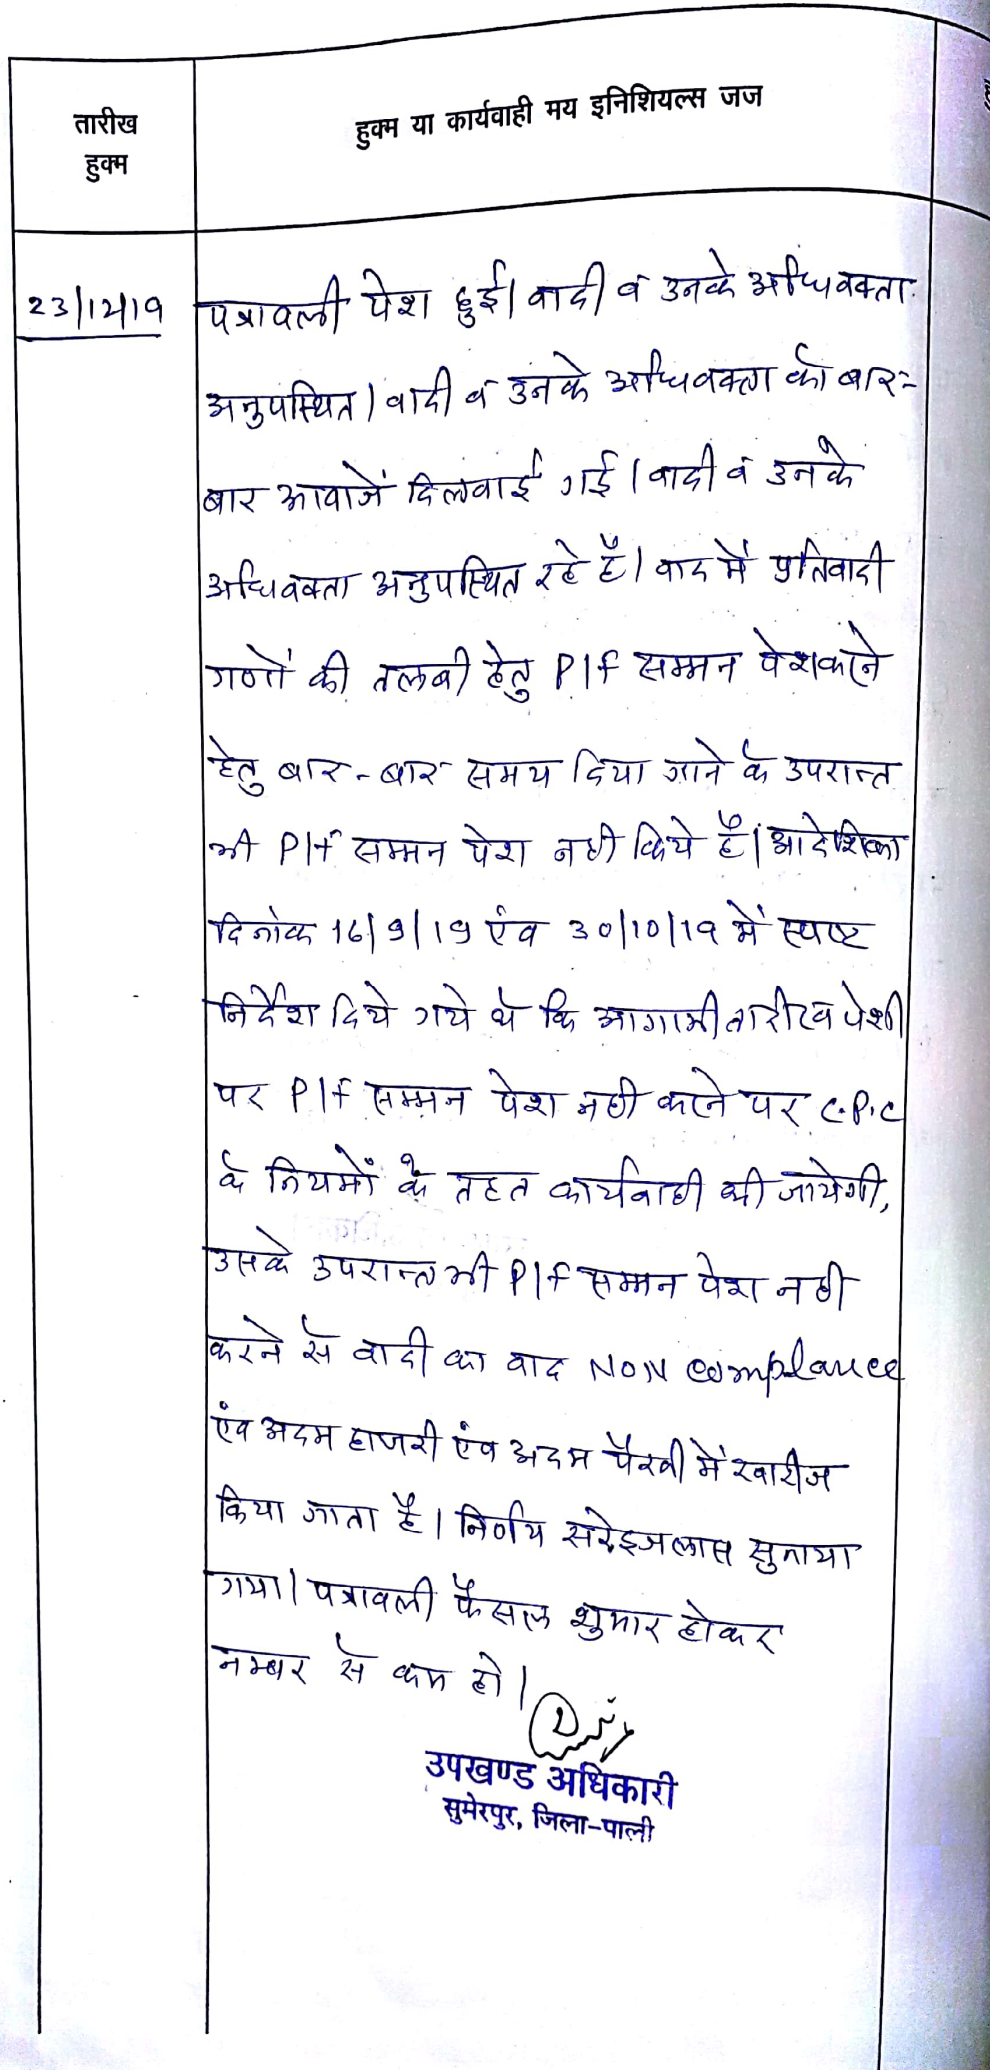 तारीख
हुक्म
हुक्म या कार्यवाही मय इनिशियल्स जज
23/12/19
पत्रावली पेश हुई। वादी व उनके अधिवक्ता
अनुपस्थित। वादी व उनके अधिवक्ता को बार-
बार आवाजें दिलवाई गई। वादी व उनके
अधिवक्ता अनुपस्थित रहे है। वाद में प्रतिवादी
गणों की तलबी हेतु P/F सम्मन पेश करने
हेतु बार-बार समय दिया जाने के उपरान्त
भी P/F सम्मन पेश नही किये है। आदेशिका
दिनांक 16/9/19 एंव 30/10/19 में स्पष्ट
निर्देश दिये गये थे कि आगामी तारीख पेशी
पर P/F सम्मन पेश नही करने पर C.P.C
के नियमों के तहत कार्यवाही की जायेगी,
उसके उपरान्त भी P/F सम्मन पेश नही
करने से वादी का वाद NON complance
एंव अदम हाजरी एंव अदम पैरवी में खारीज
किया जाता है। निर्णय सरेइजलास सुनाया
गया। पत्रावली फैसल शुमार होकर
नम्बर से कम हो।
उपखण्ड अधिकारी
सुमेरपुर, जिला-पाली